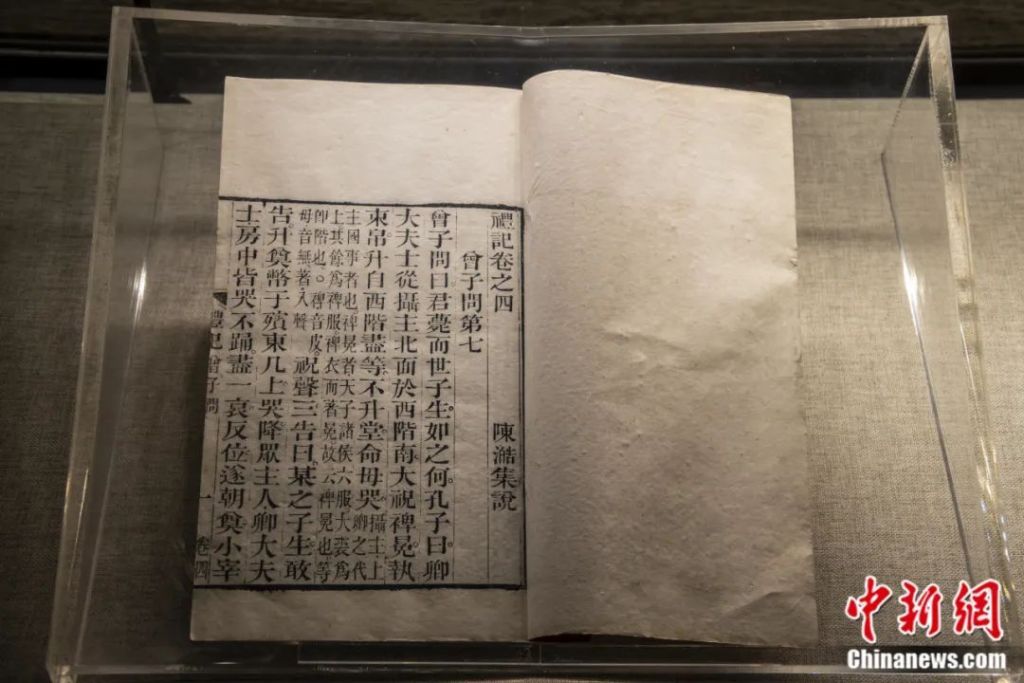 禮記卷之四 陳澔集說
曾子問第七
曾子問曰君薨而世子生。如之何。孔子曰。卿
大夫士從攝主北面於西階南大祝裨冕。執
束帛。升自西階。盡等。不升堂。命毋哭。攝主上卿之代
主國事者也。裨冕者天子諸侯六服大裘為
上其餘為裨服裨衣而著冕故云裨冕也等
即階也。裨音皮。毋音無著入聲 祝聲三告曰。某之子生。敢
告。升奠幣于殯東几上哭降眾主人卿大夫
士房中皆哭不踊。盡一哀反位遂朝奠。小宰
禮記 曾子問 一 卷四
中新網
Chinanews.com